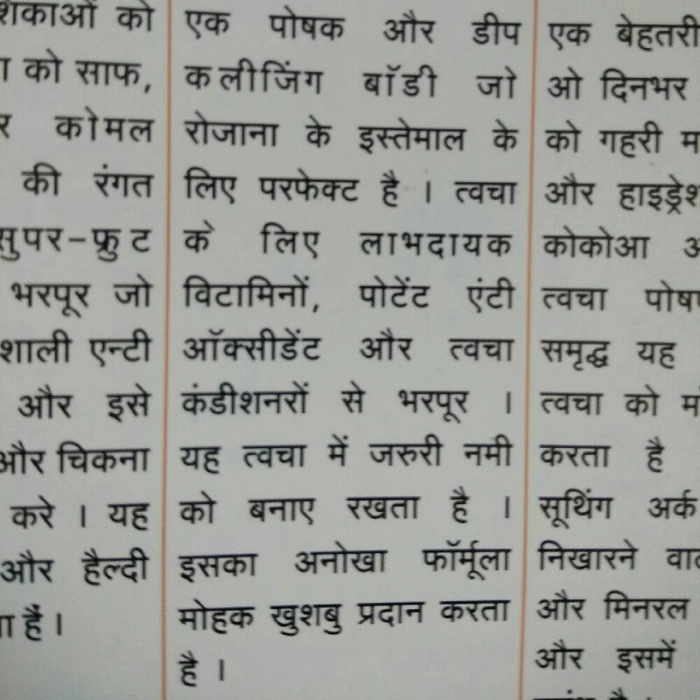 को
को साफ,
कोमल
की रंगत
सुपर-फ्रुट
भरपूर जो
एन्टी
और इसे
और चिकना
करे । यह
और हैल्दी
है ।
एक पोषक और डीप
कलीजिंग बॉडी जो
रोजाना के इस्तेमाल के
लिए परफेक्ट है । त्वचा
के लिए लाभदायक
विटामिनों, पोटेंट एंटी
ऑक्सीडेंट और त्वचा
कंडीशनरों से भरपूर ।
यह त्वचा में जरुरी नमी
को बनाए रखता है ।
इसका अनोखा फॉर्मूला
मोहक खुशबु प्रदान करता
है ।
एक
ओ दिनभर
को गहरी
और
कोकोआ
त्वचा
समृद्ध यह
त्वचा को
करता है
सूथिंग अर्क
निखारने
और मिनरल
और इसमें